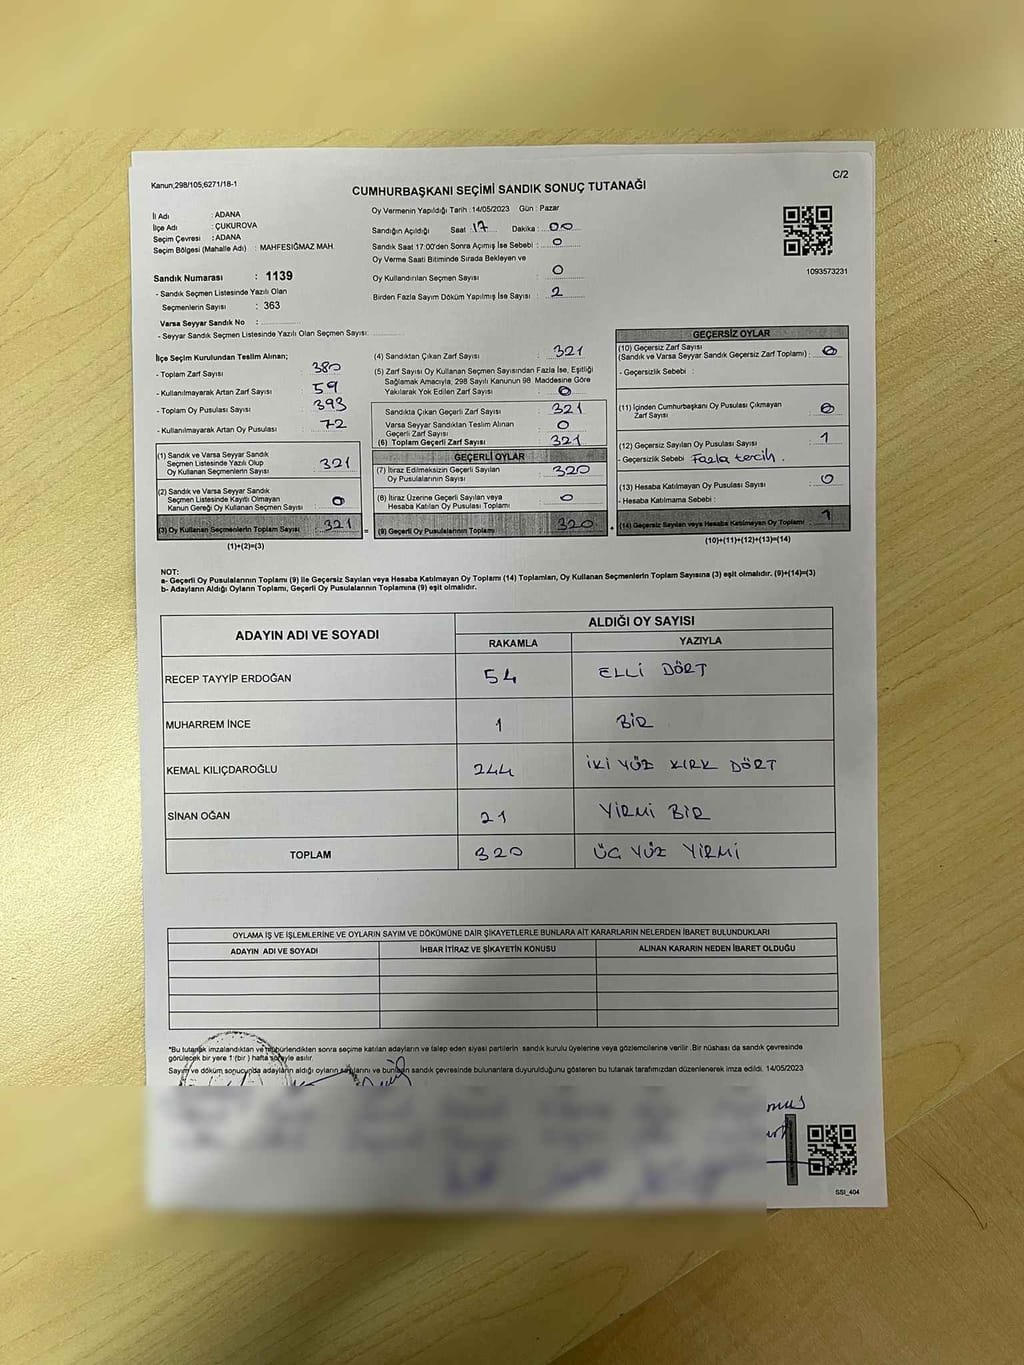 Kanun,298/105,6271/18-1
C/2
CUMHURBAŞKANI SEÇİMİ SANDIK SONUÇ TUTANAĞI
İl Adı : ADANA
İlçe Adı : ÇUKUROVA
Seçim Çevresi : ADANA
Seçim Bölgesi (Mahalle Adı) : MAHFESIĞMAZ MAH.
Sandık Numarası : 1139
- Sandık Seçmen Listesinde Yazılı Olan
Seçmenlerin Sayısı : 363
Varsa Seyyar Sandık No :
- Seyyar Sandık Seçmen Listesinde Yazılı Olan Seçmen Sayısı:
Oy Vermenin Yapıldığı Tarih : 14/05/2023 Gün : Pazar
Sandığın Açıldığı Saat : 17 Dakika : 00
Sandık Saat 17:00'den Sonra Açımış İse Sebebi : 0
Oy Verme Saati Bitiminde Sırada Bekleyen ve
Oy Kullandırılan Seçmen Sayısı : 0
Birden Fazla Sayım Döküm Yapılmış İse Sayısı : 2
1093573231
İlçe Seçim Kurulundan Teslim Alınan;
- Toplam Zarf Sayısı : 380
- Kullanılmayarak Artan Zarf Sayısı : 59
- Toplam Oy Pusulası Sayısı : 393
- Kullanılmayarak Artan Oy Pusulası : 72
(1) Sandık ve Varsa Seyyar Sandık
Seçmen Listesinde Yazılı Olup
Oy Kullanan Seçmenlerin Sayısı : 321
(2) Sandık ve Varsa Seyyar Sandık
Seçmen Listesinde Kayıtlı Olmayan
Kanun Gereği Oy Kullanan Seçmen Sayısı : 0
(3) Oy Kullanan Seçmenlerin Toplam Sayısı : 321
(1)+(2)=(3)
(4) Sandıktan Çıkan Zarf Sayısı : 321
(5) Zarf Sayısı Oy Kullanan Seçmen Sayısından Fazla İse, Eşitliği
Sağlamak Amacıyla, 298 Sayılı Kanunun 98 Maddesine Göre
Yakılarak Yok Edilen Zarf Sayısı : 0
Sandıkta Çıkan Geçerli Zarf Sayısı : 321
Varsa Seyyar Sandıktan Teslim Alınan
Geçerli Zarf Sayısı : 0
(6) Toplam Geçerli Zarf Sayısı : 321
GEÇERLİ OYLAR
(7) İtiraz Edilmeksizin Geçerli Sayılan
Oy Pusulasının Sayısı : 320
(8) İtiraz Üzerine Geçerli Sayılan veya
Hesaba Katılan Oy Pusulası Toplamı : 0
= (9) Geçerli Oy Pusulalarının Toplamı : 320
GEÇERSİZ OYLAR
(10) Geçersiz Zarf Sayısı
(Sandık ve Varsa Seyyar Sandık Geçersiz Zarf Toplamı) : 0
- Geçersizlik Sebebi :
(11) İçinden Cumhurbaşkanı Oy Pusulası Çıkmayan
Zarf Sayısı : 0
(12) Geçersiz Sayılan Oy Pusulası Sayısı : 1
- Geçersizlik Sebebi Fazla tercih.
(13) Hesaba Katılmayan Oy Pusulası Sayısı : 0
- Hesaba Katılmama Sebebi :
+ (14) Geçersiz Sayılan veya Hesaba Katılmayan Oy Toplamı : 1
(10)+(11)+(12)+(13)=(14)
NOT:
a- Geçerli Oy Pusulalarının Toplamı (9) ile Geçersiz Sayılan veya Hesaba Katılmayan Oy Toplamı (14) Toplamları, Oy Kullanan Seçmenlerin Toplam Sayısına (3) eşit olmalıdır. (9)+(14)=(3)
b- Adayların Aldığı Oyların Toplamı, Geçerli Oy Pusulalarının Toplamına (9) eşit olmalıdır.
ADAYIN ADI VE SOYADI
ALDIĞI OY SAYISI
RAKAMLA YAZIYLA
RECEP TAYYİP ERDOĞAN 54 ELLİ DÖRT
MUHARREM İNCE 1 BİR
KEMAL KILIÇDAROĞLU 244 İKİ YÜZ KIRK DÖRT
SİNAN OĞAN 21 YİRMİ BİR
TOPLAM 320 ÜÇ YÜZ YİRMİ
OYLAMA İŞ VE İŞLEMLERİNE VE OYLARIN SAYIM VE DÖKÜMÜNE DAİR ŞİKAYETLERLE BUNLARA AİT KARARLARIN NELERDEN İBARET BULUNDUKLARI
ADAYIN ADI VE SOYADI İHBAR İTİRAZ VE ŞİKAYETİN KONUSU ALINAN KARARIN NEDEN İBARET OLDUĞU
"Bu tutanak imzalandıktan ve mühürlendikten sonra seçime katılan adayların ve talep eden siyasi partilerin sandık kurulu üyelerine veya gözlemcilerine verilir. Bir nüshası da sandık çevresinde
görülecek bir yere 1 (bir) hafta süreyle asılır.
Sayım ve döküm sonucunda adayların aldığı oyların sayılarını ve bunların sandık çevresinde bulunanlara duyurulduğunu gösteren bu tutanak tarafımızdan düzenlenerek imza edildi. 14/05/2023
SSI_404